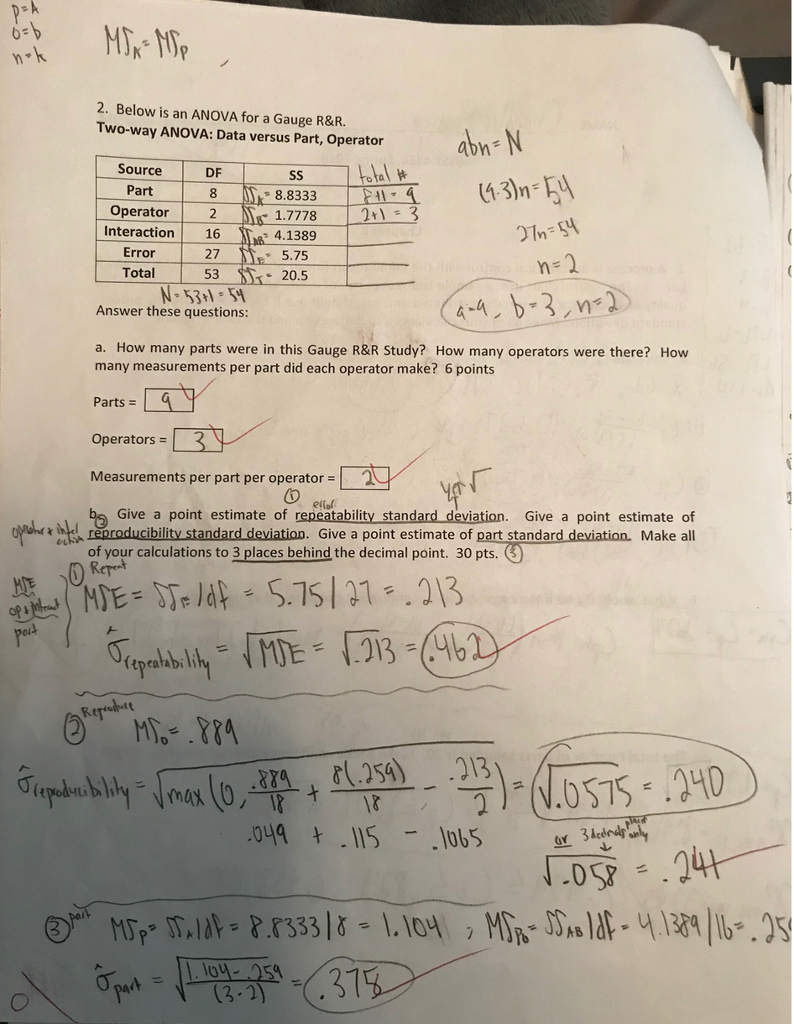 p=A
o=b
n=k
MS_A = MS_P
2. Below is an ANOVA for a Gauge R&R.
Two-way ANOVA: Data versus Part, Operator
abn = N
(9·3)n = 54
27n = 54
n = 2
a=9, b=3, n=2
Source DF SS total #
Part 8 SS_A= 8.8333 8+1 = 9
Operator 2 SS_B= 1.7778 2+1 = 3
Interaction 16 SS_AB= 4.1389
Error 27 SS_E= 5.75
Total 53 SS_T= 20.5
N = 53+1 = 54
Answer these questions:
a. How many parts were in this Gauge R&R Study? How many operators were there? How
many measurements per part did each operator make? 6 points
Parts = 9
Operators = 3
Measurements per part per operator = 2
① error
b. Give a point estimate of repeatability standard deviation. Give a point estimate of
② reproducibility standard deviation. Give a point estimate of part standard deviation. Make all
of your calculations to 3 places behind the decimal point. 30 pts. ③
① Repeat
MSE
part
MSE = SS_E/df = 5.75/27 = .213
σ̂ repeatability = √MSE = √.213 = .462
② Reproduce
MS_o = .889
σ̂ reproducibility = √max(0, .889/18 + 8(.259)/18 - .213/2) = √.0575 = .240
.049 + .115 - .1065
or 3 decimals places only
√.058 = .241
③ part MS_P = SS_A/df = 8.8333/8 = 1.104 ; MS_Po = SS_AB/df = 4.1389/16 = .259
σ̂ part = √1.104-.259/(3·2) = .375